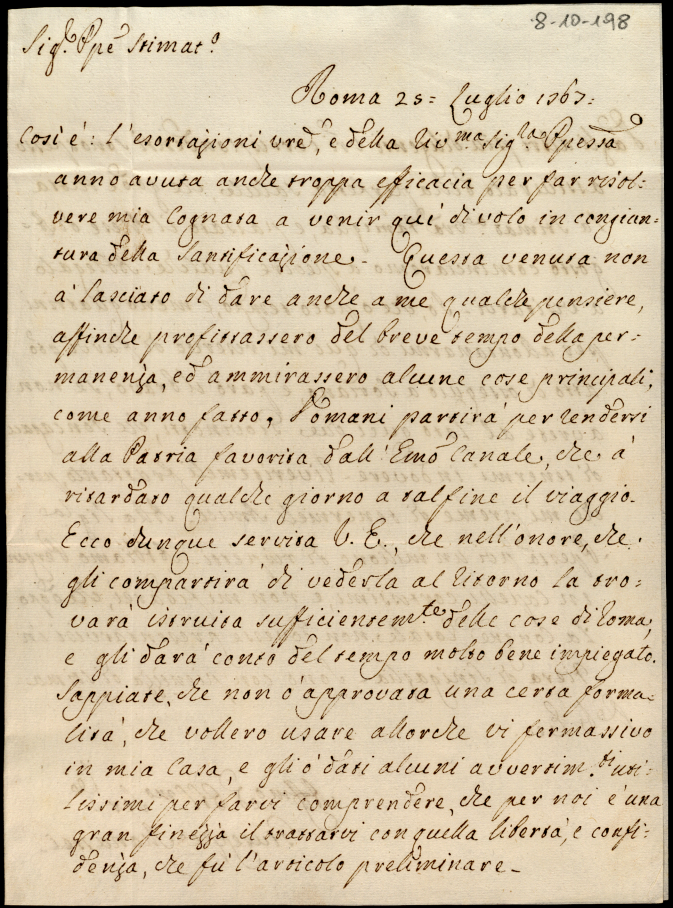 8-10-198
Sig.r Ppe Stimat.o
Roma 25= Luglio 1767=
Cosi é: l'esortazioni vre, e della Riv.ma Sig.ra Ppessa
anno avuta anche troppa efficacia per far risol-
vere mia Cognata a venir quí di volo in congian-
tura della Santificazione. Questa venuta non
á lasciato di dare anche a me qualche pensiere,
affinche profittassero del breve tempo della per-
manenza, ed ammirassero alcune cose principali,
come anno fatto. Domani partirá per rendersi
alla Patria favorita dall' Emo Canale, che á
ritardato qualche giorno a tal fine il viaggio.
Ecco dunque servita V. E., che nell'onore, che
gli compartirá di vederla al ritorno la tro-
vará istruita sufficientem.te delle cose di Roma,
e gli dará conto del tempo molto bene impiegato.
Sappiate, che non ó approvata una certa forma-
litá, che vollero usare allorche vi fermassivo
in mia Casa, e gli ó dati alcuni avvertim.ti uti-
lissimi per farvi comprendere, che per noi é una
gran finezza il trattarvi con quella libertá, e confi-
denza, che fú l'articolo preliminare-